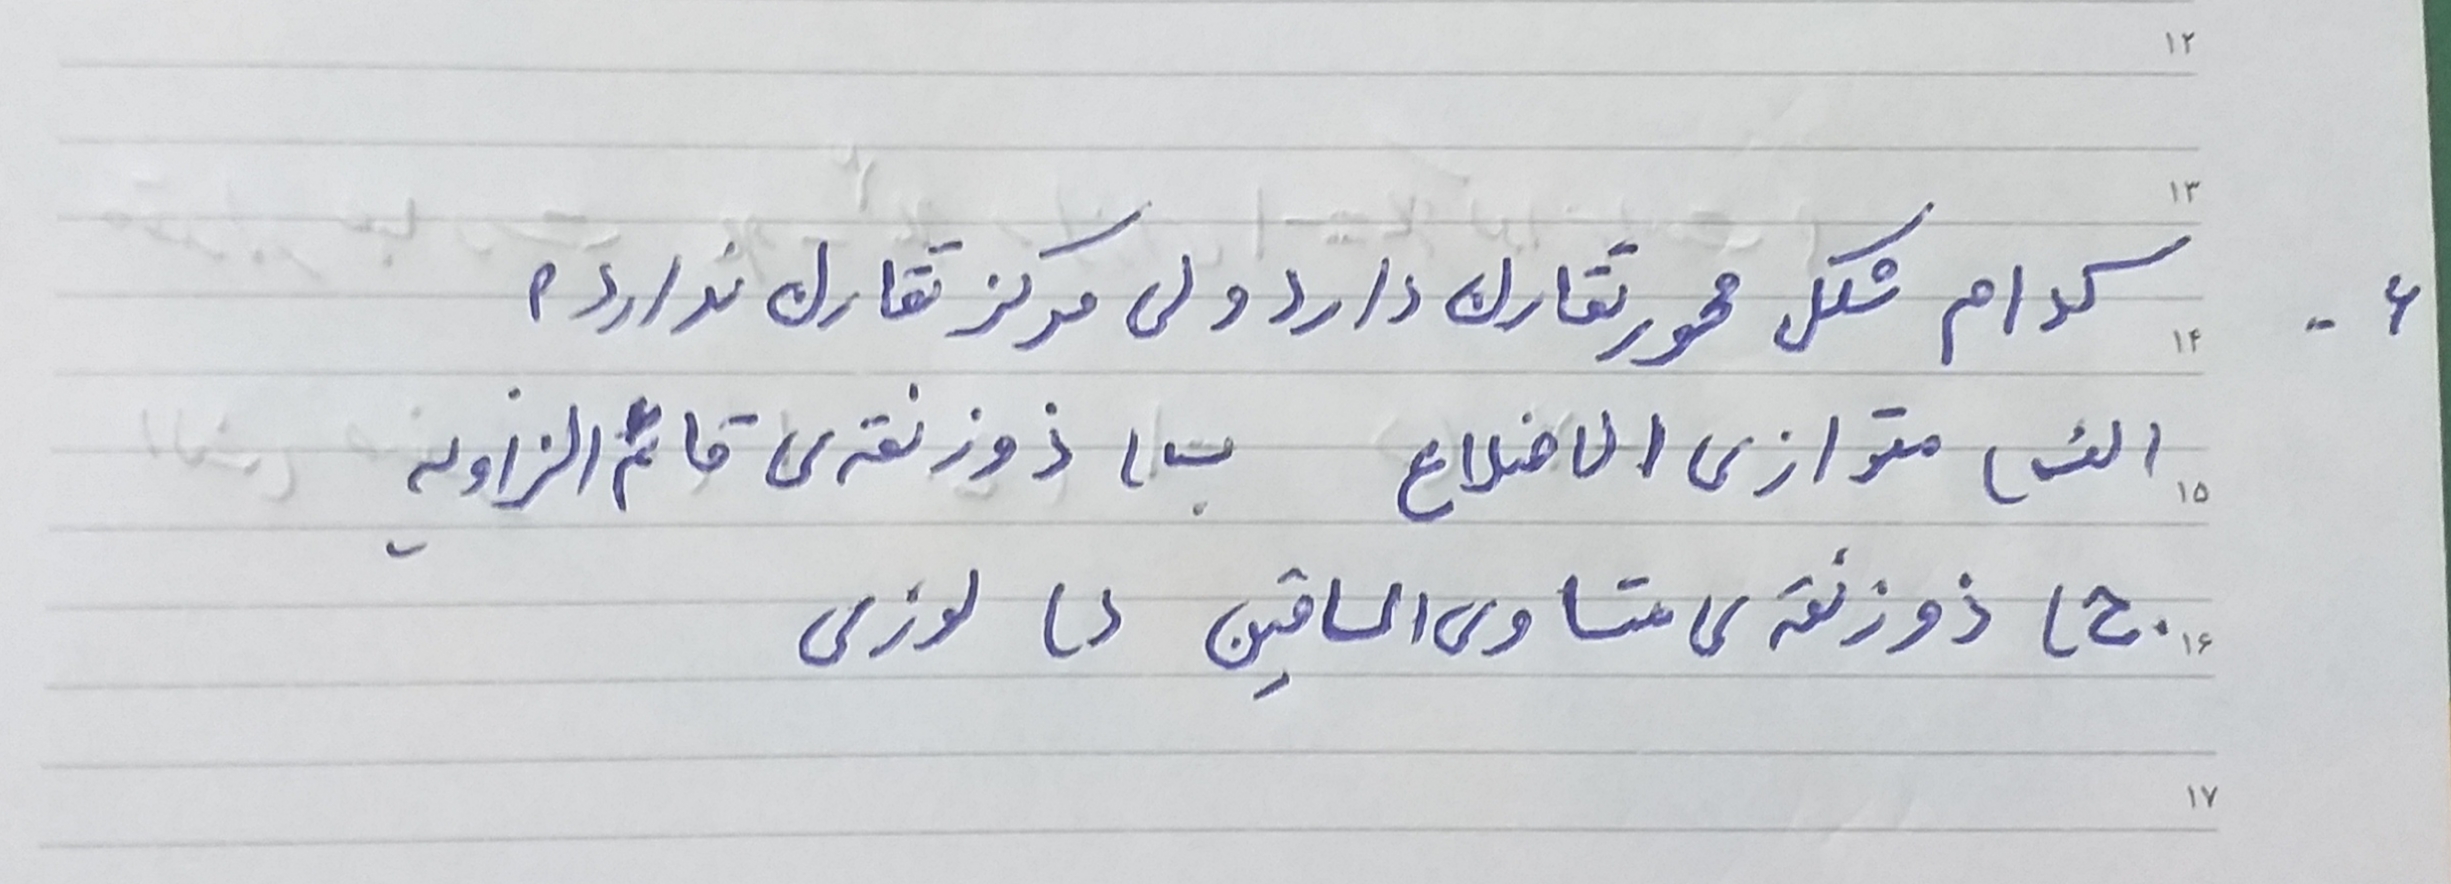 ۱۲
۱۳
۶- کدام شکل محور تقارن دارد ولی مرکز تقارن ندارد؟
۱۴
الف) متوازی الاضلاع ب) ذوزنقه ی قائم الزاویه
۱۵
ج) ذوزنقه ی متساوی الساقین د) لوزی
۱۶
۱۷